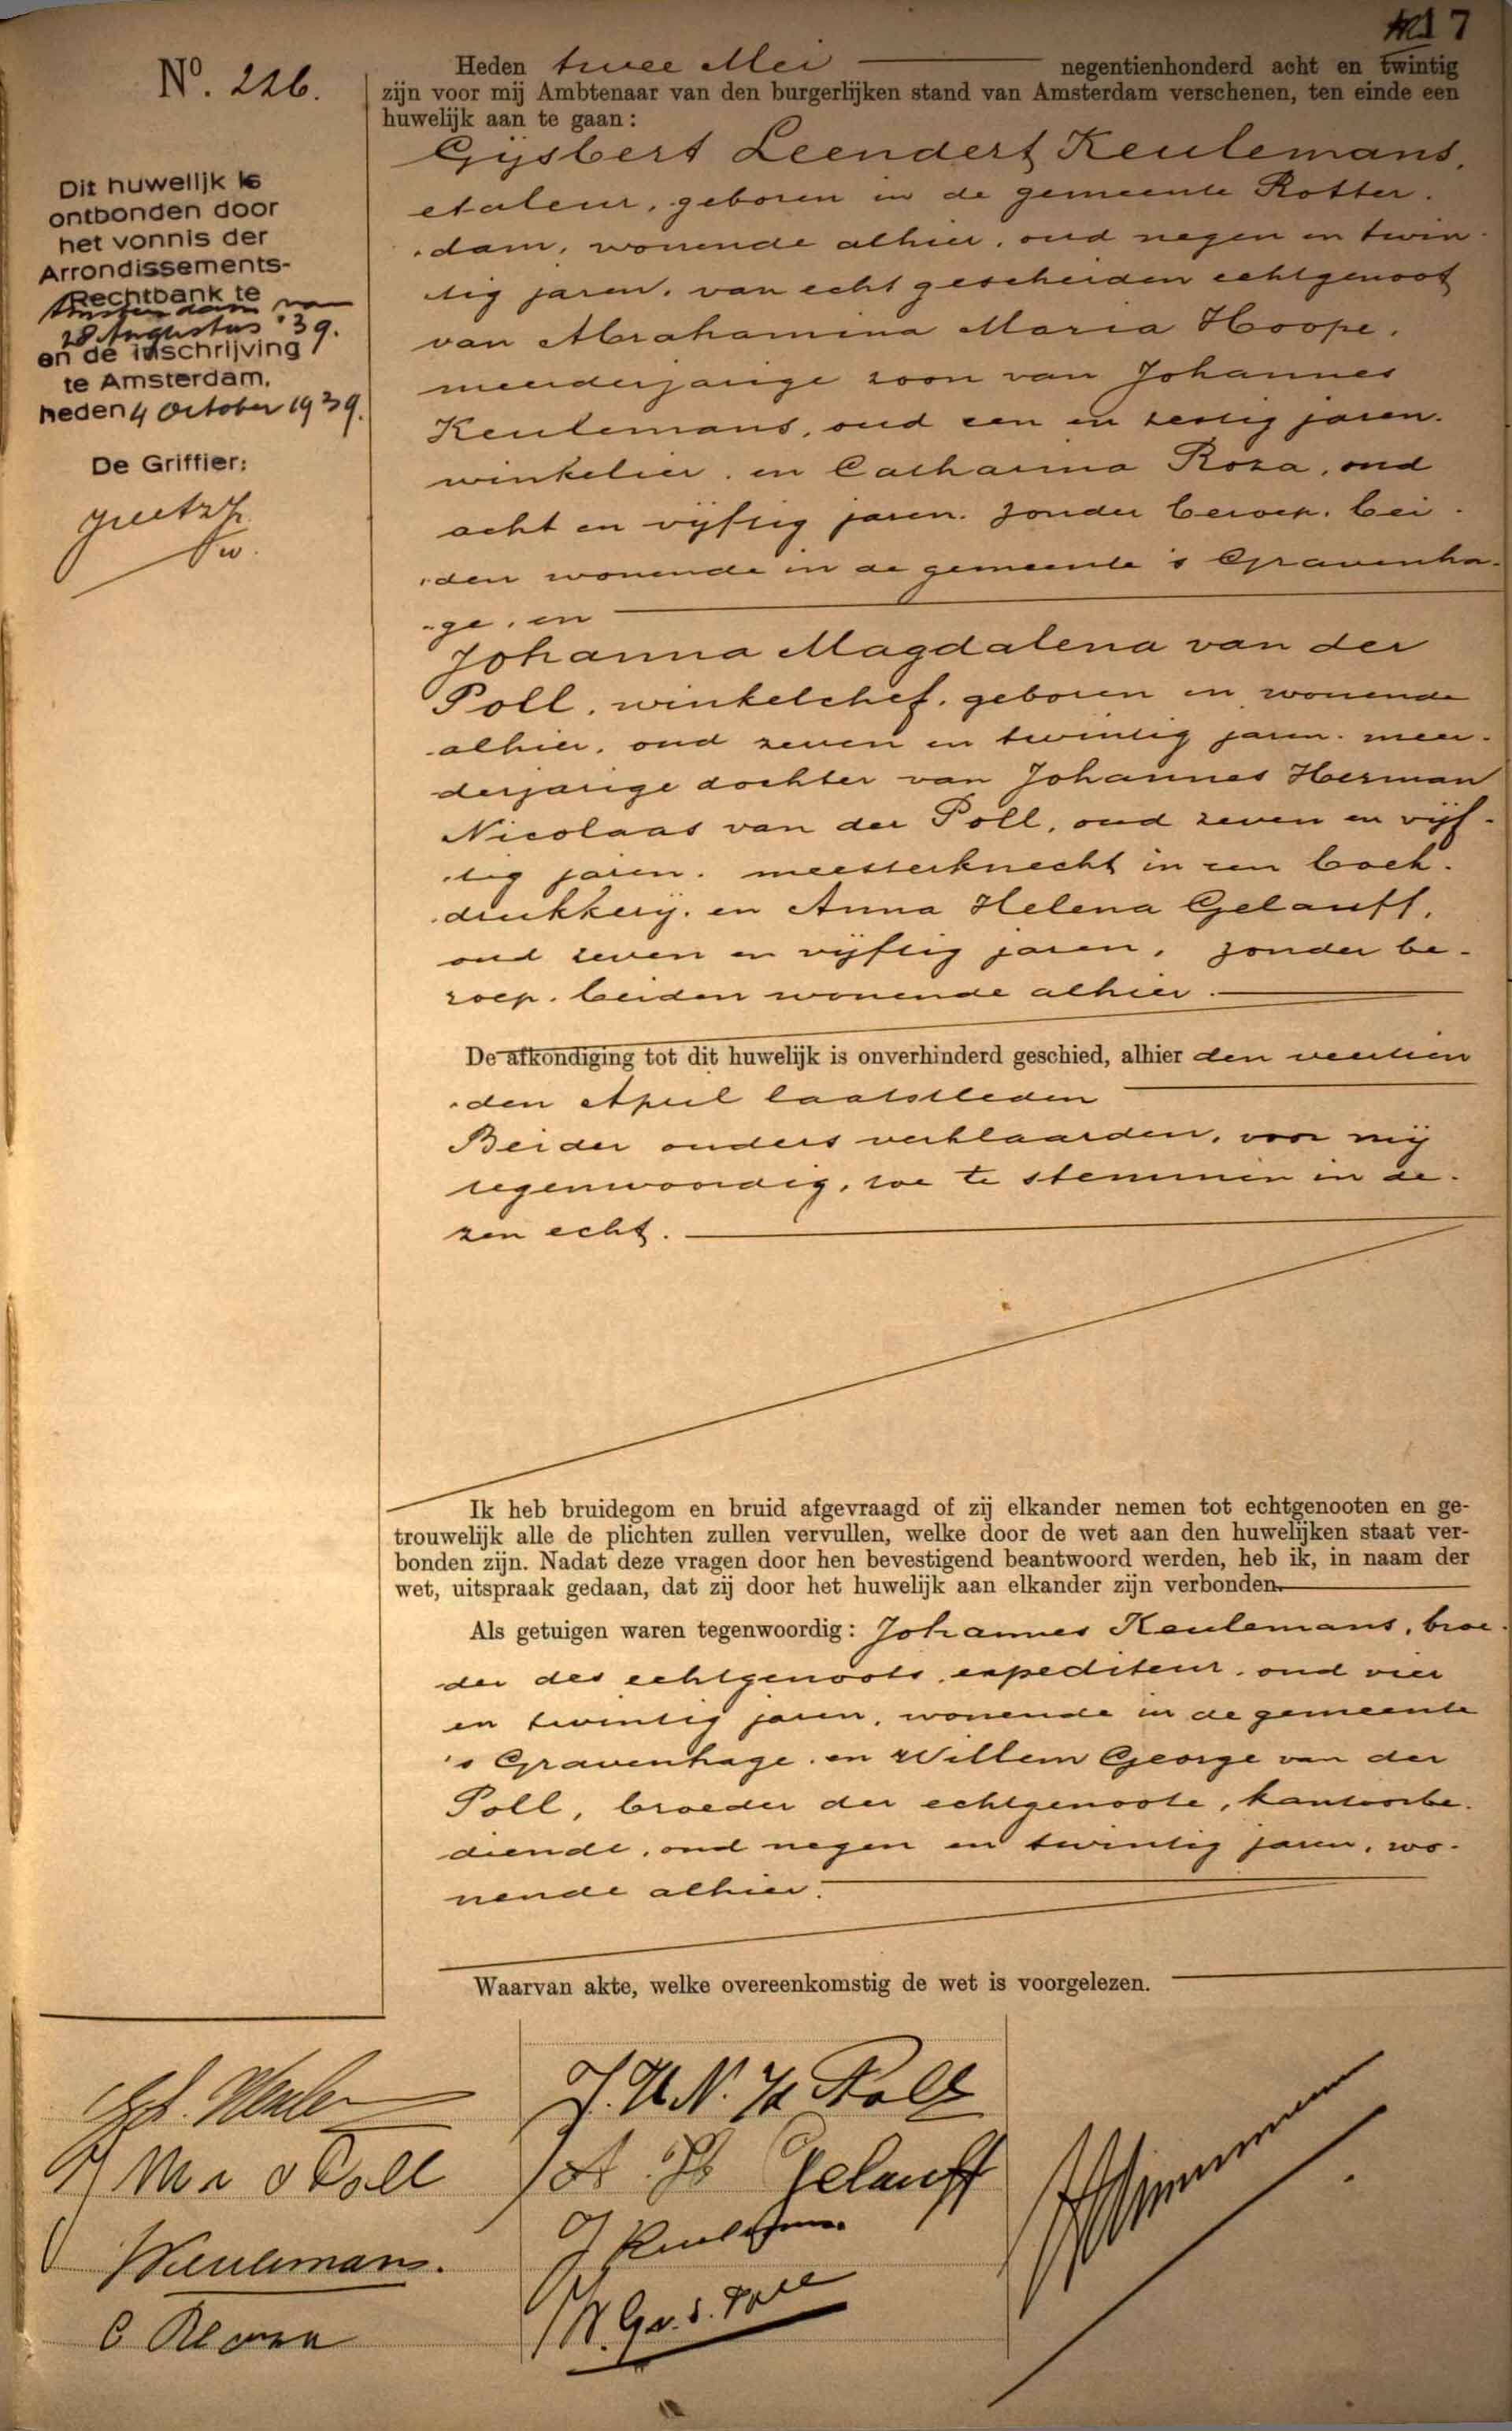 17
No. 226.
Heden twee Mei negentienhonderd acht en twintig
zijn voor mij Ambtenaar van den burgerlijken stand van Amsterdam verschenen, ten einde een
huwelijk aan te gaan:
Gijsbert Leendert Keulemans,
etaleur, geboren in de gemeente Rotter-
dam, wonende alhier, oud negen en twin-
tig jaren, van echt gescheiden echtgenoot
van Abrahamina Maria Hoope,
meerderjarige zoon van Johannes
Keulemans, oud een en zestig jaren,
winkelier, en Catharina Roza, oud
acht en vijftig jaren, zonder beroep, bei-
den wonende in de gemeente 's Gravenha-
ge, en
Johanna Magdalena van der
Poll, winkelchef, geboren en wonende
alhier, oud zeven en twintig jaren, meer-
derjarige dochter van Johannes Herman
Nicolaas van der Poll, oud zeven en vijf-
tig jaren, meesterknecht in een boek-
drukkerij, en Anna Helena Gelauff,
oud zeven en vijftig jaren, zonder be-
roep, beiden wonende alhier.
De afkondiging tot dit huwelijk is onverhinderd geschied, alhier den veertien
den April laatstleden
Beider ouders verklaarden, voor mij
tegenwoordig, toe te stemmen in de-
zen echt.
Ik heb bruidegom en bruid afgevraagd of zij elkander nemen tot echtgenooten en ge-
trouwelijk alle de plichten zullen vervullen, welke door de wet aan den huwelijken staat ver-
bonden zijn. Nadat deze vragen door hen bevestigend beantwoord werden, heb ik, in naam der
wet, uitspraak gedaan, dat zij door het huwelijk aan elkander zijn verbonden.
Als getuigen waren tegenwoordig: Johannes Keulemans, broe-
der des echtgenoots, expediteur, oud vier
en twintig jaren, wonende in de gemeente
's Gravenhage, en Willem George van der
Poll, broeder der echtgenoote, kantoorbe-
diende, oud negen en twintig jaren, wo-
nende alhier.
Waarvan akte, welke overeenkomstig de wet is voorgelezen.
Dit huwelijk is
ontbonden door
het vonnis der
Arrondissements-
Rechtbank te
Amsterdam van
28 Augustus '39.
en de inschrijving
te Amsterdam,
heden 4 October 1939.
De Griffier:
J M v d Poll
JKeulemans.
C Rozza
J. H. N. vd Poll
A H Gelauff
J Keulemans
W. G. v. d. Poll